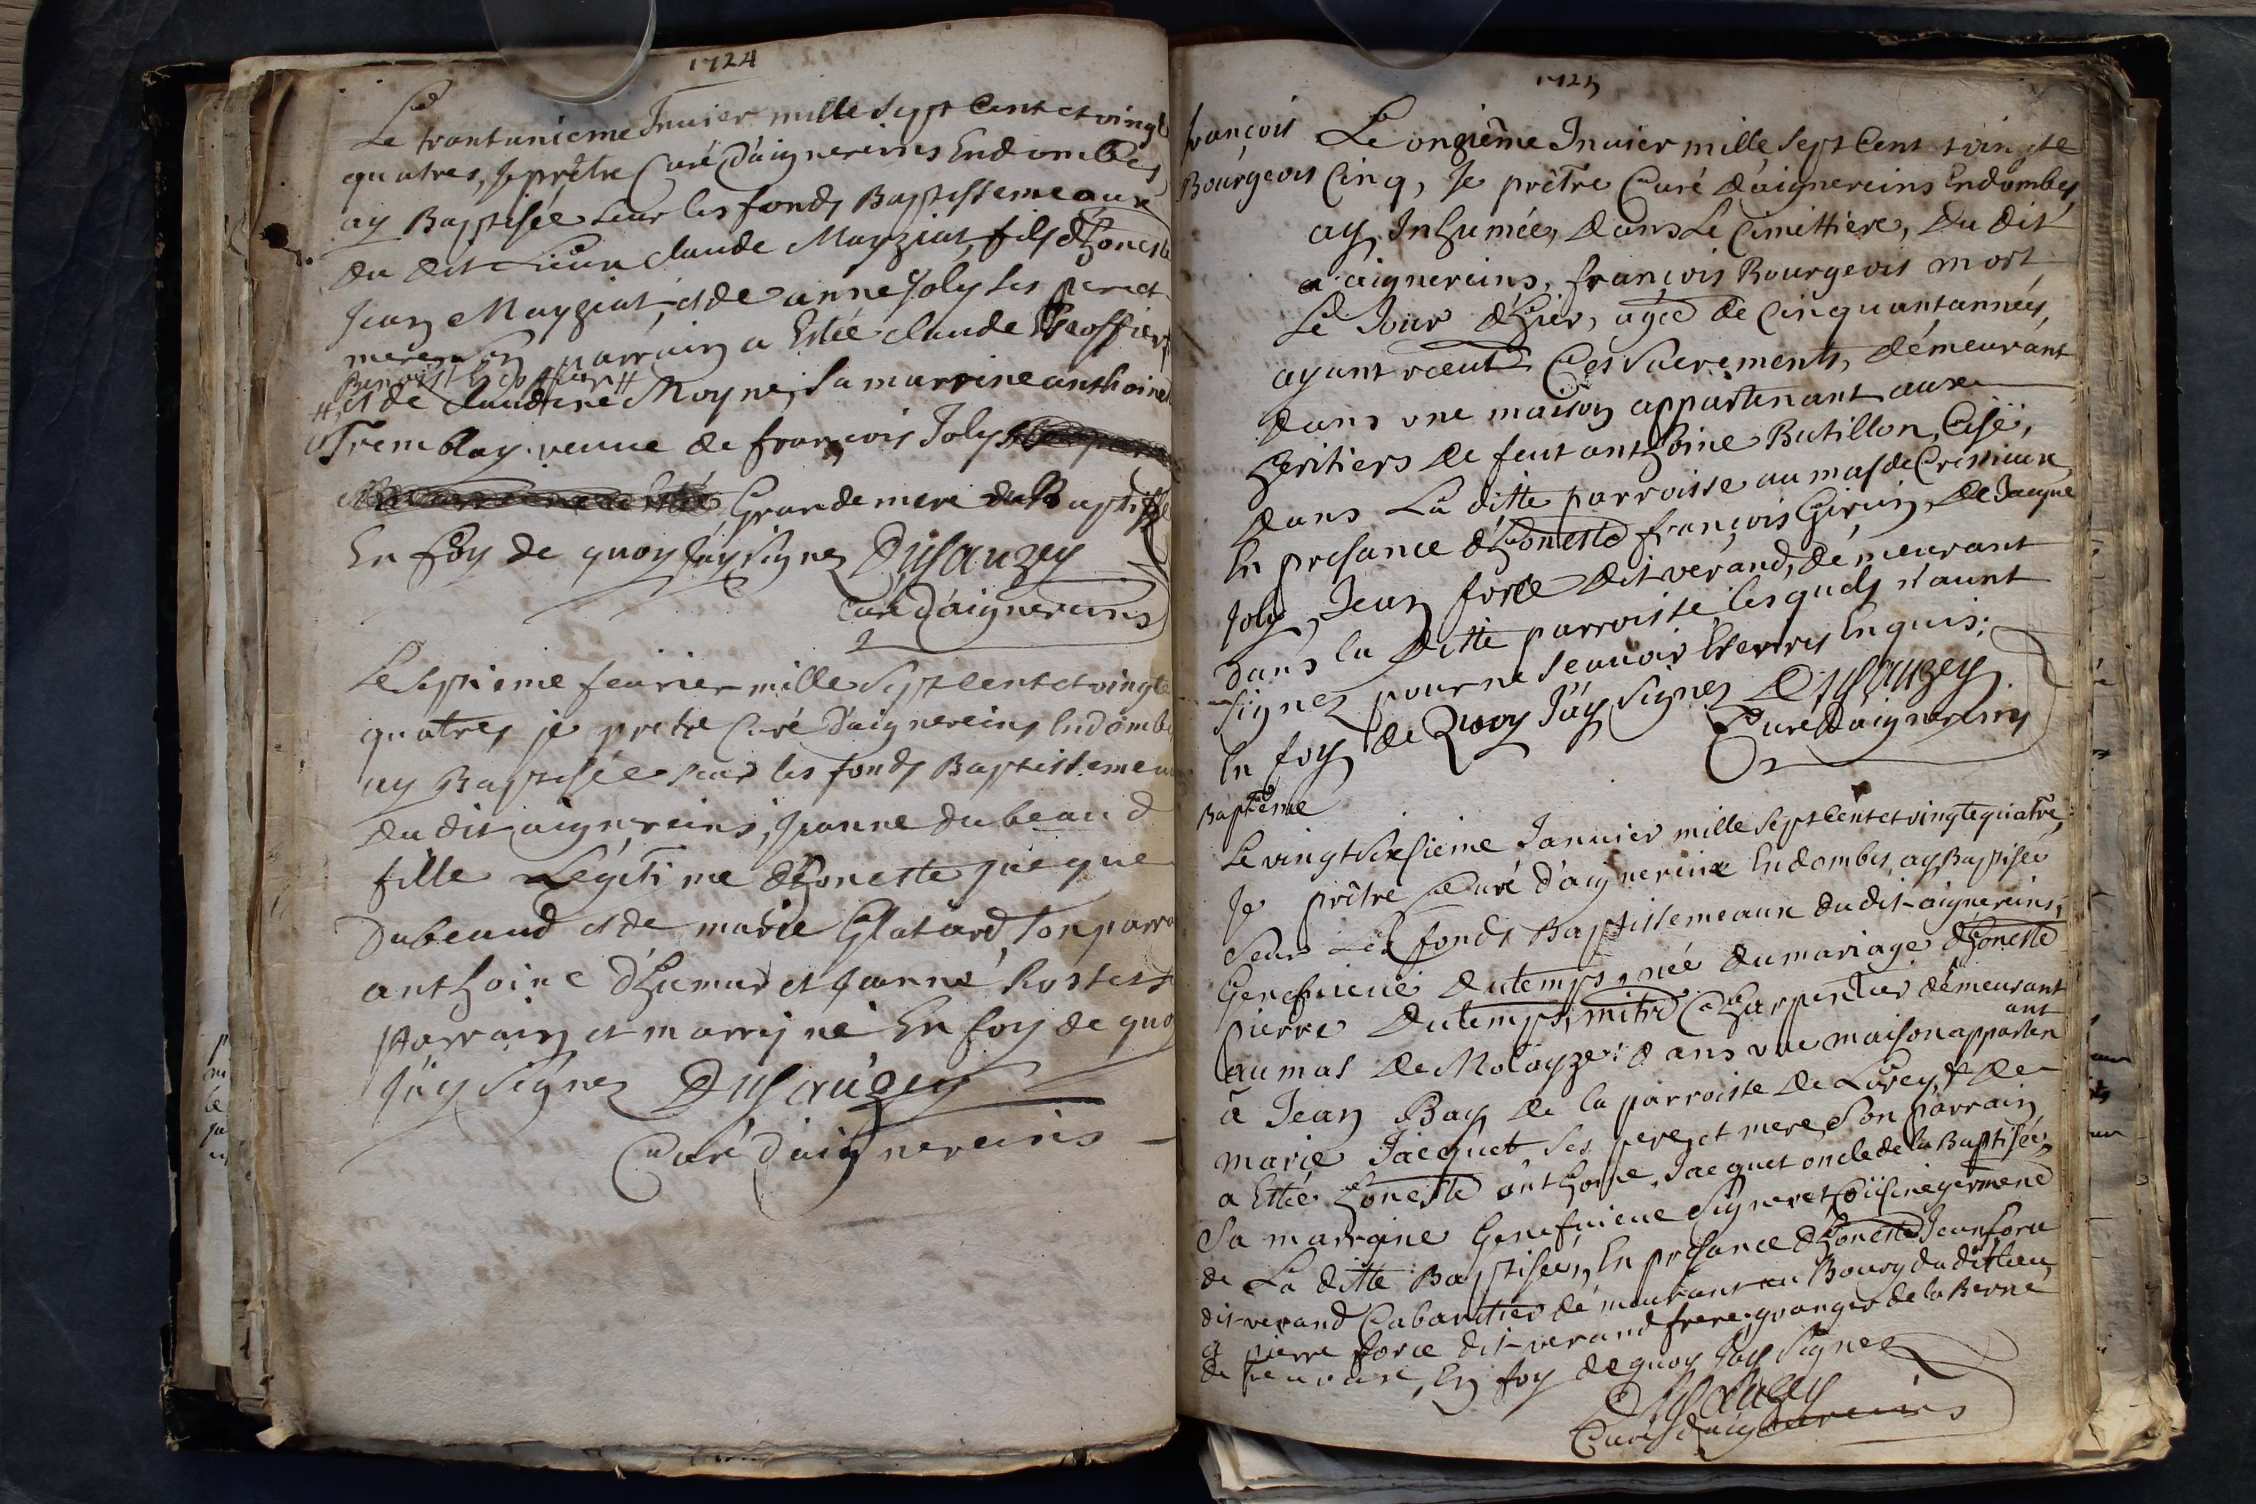 1724
Le trantunieme Jnuier mille Sept Cent et vingt
quatres, Je prêtre Curé d'aignereins En dombes
ay Baptisée sur les fonds Baptissemeaux
du dit Lieu claude Mayziat, fils d'honeste
Jean Mayziat, et de anne Joly ses pere et
mere Son parrain a Estée claude
Benoist
et de claudine Moyne, Sa marrine anthoine
Tremblay veuue de françois Joly
Grande mere du Baptisé
En foy de quoy J'ay signez Dusauzey
Curé d'aignereins
Le Septieme feurier mille Sept cent et vingte
quatres je pretre Curé d'aignereins En dombe
ay Baptisée sur les fonds Baptissemeau
du dit aignereins, Jeanne dubeaud
fille Legiti me d'honeste Jacque
Dubeaud et de marie Glatard, son parra
anthoine d'humar et Jeanne
parrain et marrine En foy de quoy
J'ay Signez Dusauzey
Curé d'aignereins
1725
françois
Bourgeois
Le onzième Jnuier mille Sept Cent vingte
Cinq, Je prêtre Curé d'aignereins En dombes
ay Inhumée, dans Le Cimittière, du dit
aignereins, françois Bourgeois mort
Le Jour d'hier, agée de Cinquant années,
ayant rceut Ces Sacrements, démeurant
dans vne maison appartenant aux
heritiers de feut anthoine Butillon, Cisë,
dans La ditte parroisse au mas de
En presance d'honeste françois Girin, de Jacque
Joly, Jean force dit verand, démeurant
dans la ditte parroisse, lesquels n'aunt
signez pour ne seauoir Enquis;
En foy de Quoy J'ay signez Dusauzey
Curé D'aignereins
Baptême
Le vingt Sixsieme Januier mille Sept Cent et vingte quatre,
Je prêtre Curé d'aignereins En dombes, ay Baptisée
Seur Les fonds Baptissemeaux du dit aignereins,
Genefuieue dutemps, née du mariage d'honeste
pierre dutemps, mitre Charpentier démeurant
au mas de Molayze: dans vne maison apparten
ant
à Jean Bay de la parroisse de Lurey, & de
marie Jacquet ses pere et mere, Son parrain
a Estée honeste anthoine Jacquet oncle de la Baptisée,
Sa marraine Genefuieue Signeret, Coüsine germene
de La ditte Baptisée, En presance d'honeste Jean force
dit verand Cabaretier démeurant au Bourg du dit lieu,
& pierre force dit verand frere, granger de la Berne
de, En foy de quoy J'ay Signez
Dusauzey
Curé d'aignereins